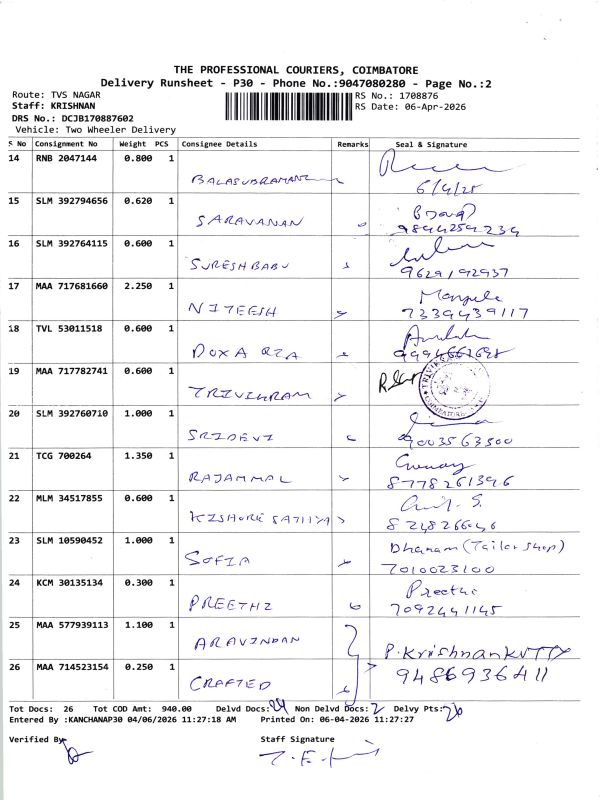 THE PROFESSIONAL COURIERS, COIMBATORE
Delivery Runsheet - P30 - Phone No.:9047080280 - Page No.:2
Route: TVS NAGAR RS No.: 1708876
Staff: KRISHNAN RS Date: 06-Apr-2026
DRS No.: DCJB170887602
Vehicle: Two Wheeler Delivery
S No Consignment No Weight PCS Consignee Details Remarks Seal & Signature
14 RNB 2047144 0.800 1
6/4/25
15 SLM 392794656 0.620 1
SARAVANAN 9894259234
16 SLM 392764115 0.600 1
SURESH BABU 9629192937
17 MAA 717681660 2.250 1
NITEESH 7339439117
18 TVL 53011518 0.600 1
DOXA
19 MAA 717782741 0.600 1
TRIVIKRAM
20 SLM 392760710 1.000 1
SRIDEVI 9003563500
21 TCG 700264 1.350 1
RAJAMMAL 8778261396
22 MLM 34517855 0.600 1
KISHORE SATHYA
23 SLM 10590452 1.000 1 Dhanam (Tailor shop)
SOFIA 7010023100
24 KCM 30135134 0.300 1 Preethi
PREETHI 7092441145
25 MAA 577939113 1.100 1
ARAVINDAN P. KrishnanKUTTY
26 MAA 714523154 0.250 1 9486936411
CRAFTED
Tot Docs: 26 Tot COD Amt: 940.00 Delvd Docs: 24 Non Delvd Docs: 2 Delvy Pts: 26
Entered By :KANCHANAP30 04/06/2026 11:27:18 AM Printed On: 06-04-2026 11:27:27
Verified By Staff Signature